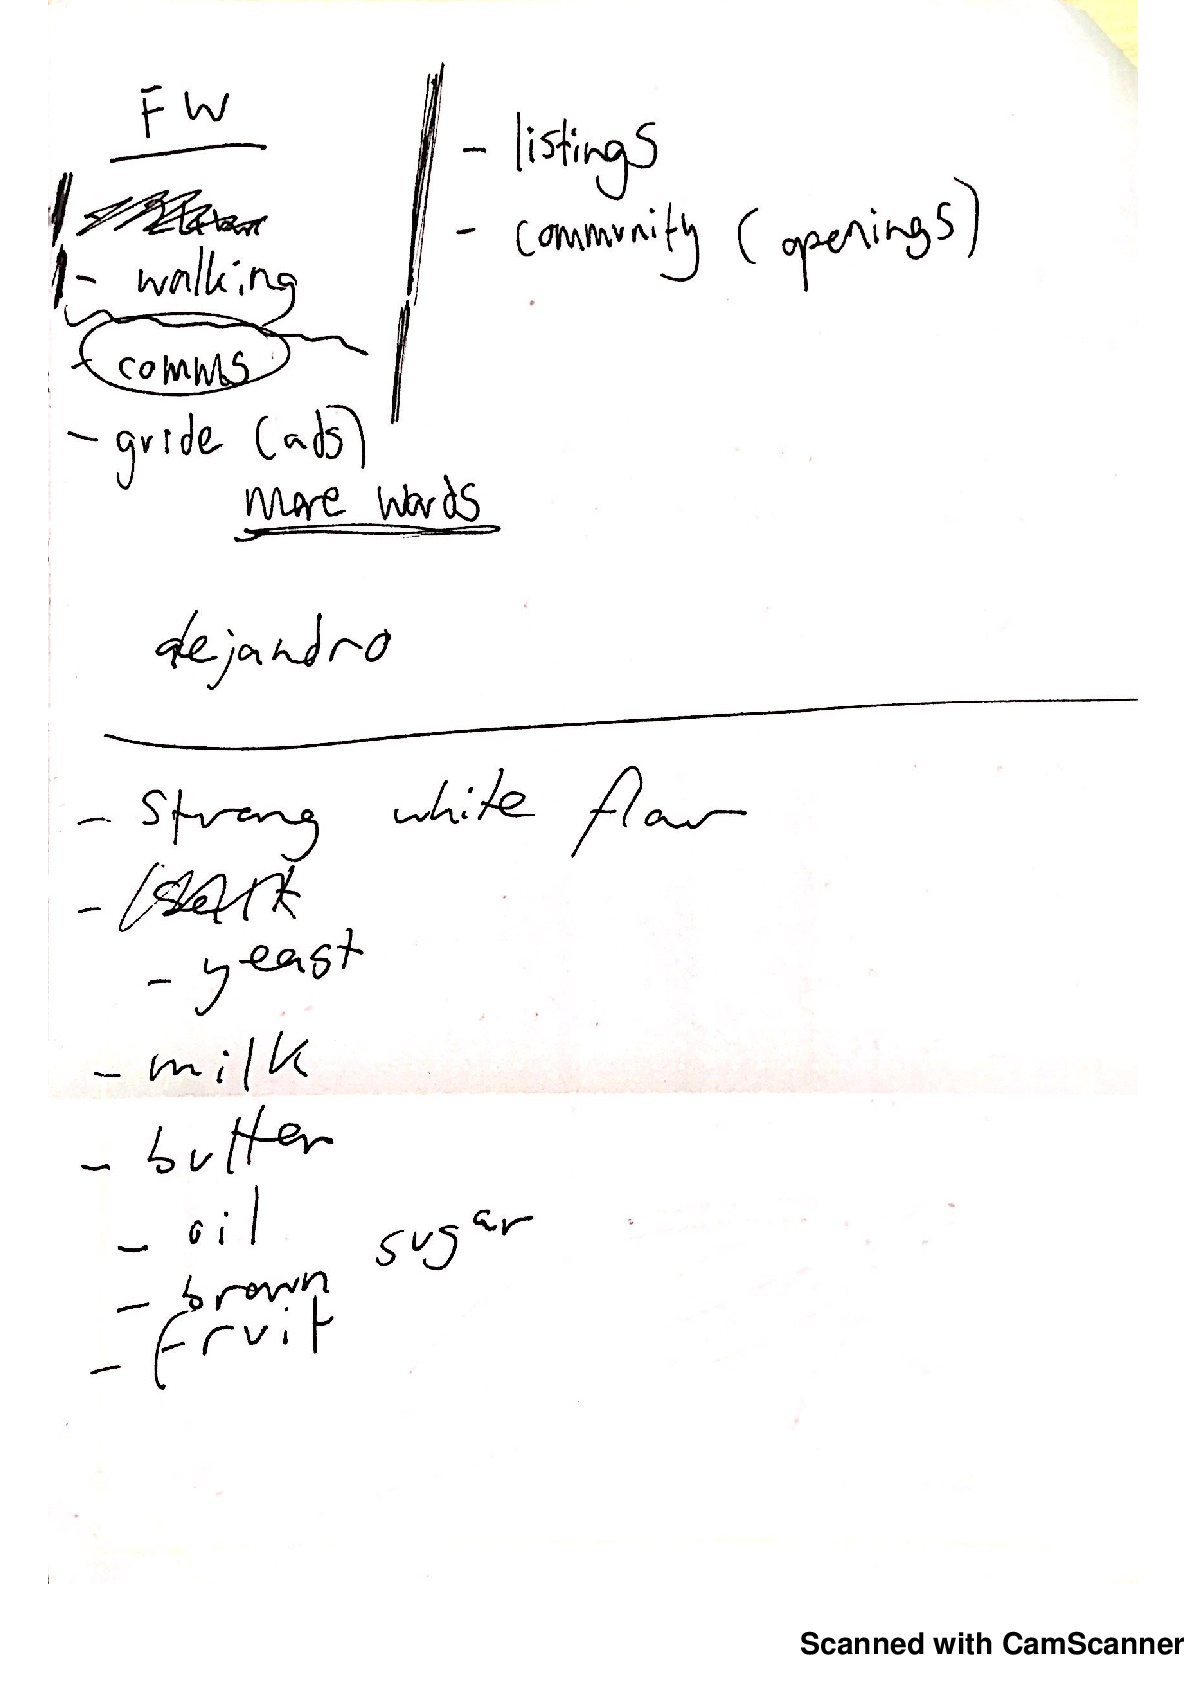 FW
- walking
- comms
- guide (ads)
more words
- listings
- community (openings)
alejandro
- strong white flour
-
- yeast
- milk
- butter
- oil
- brown sugar
- fruit
Scanned with CamScanner